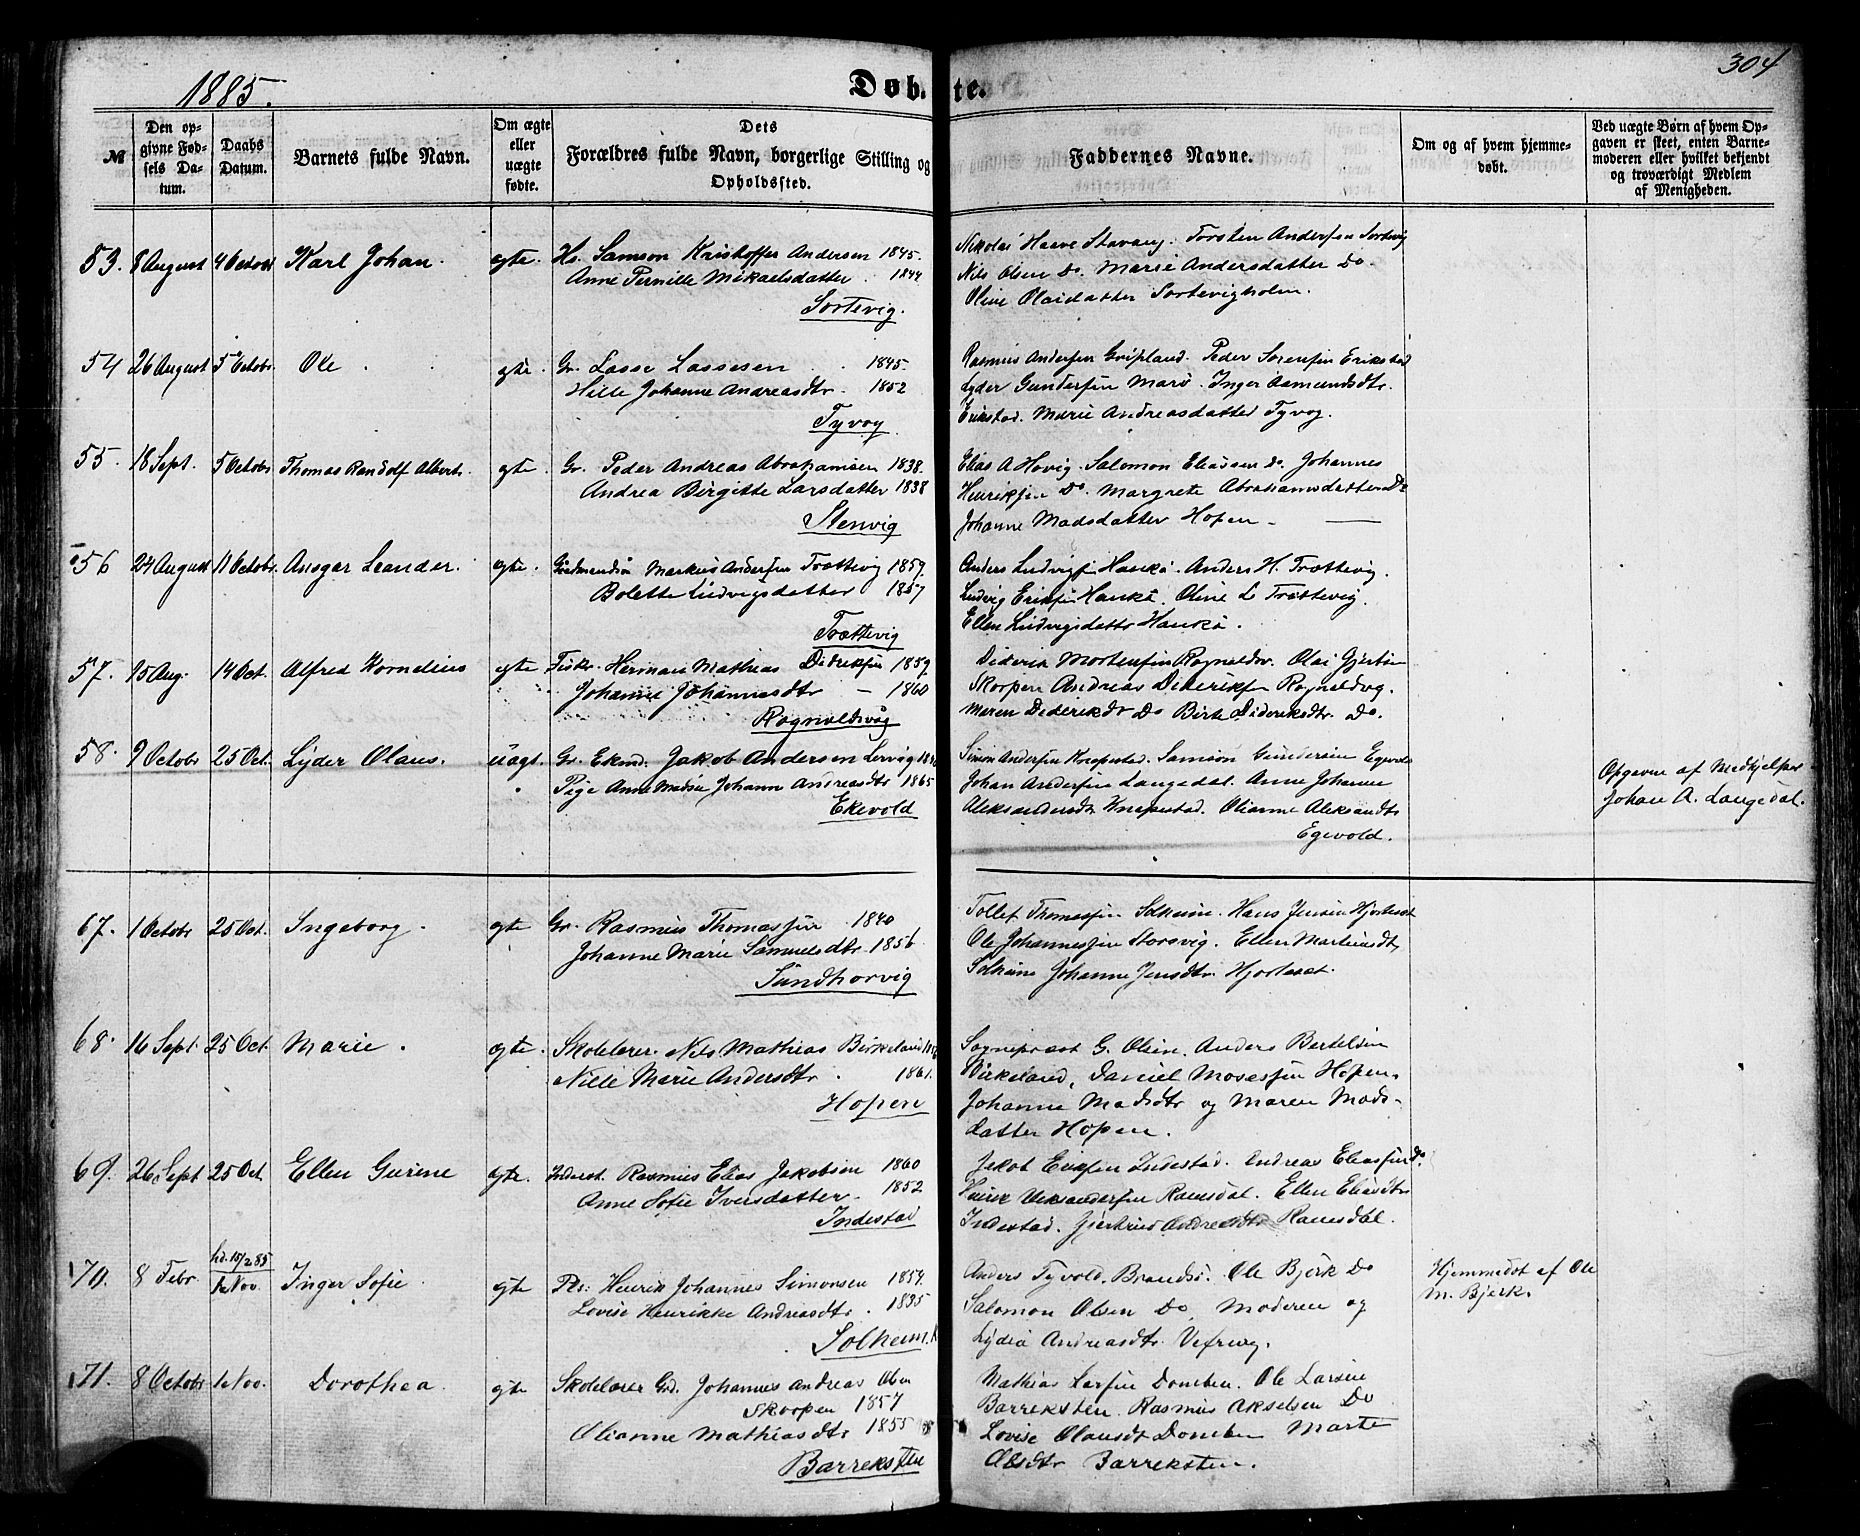 1885.
Døb-te.
304
№
Den opgivne Fødsels Datum.
Daabs Datum.
Barnets fulde Navn.
Om ægte eller uægte fødte.
Dets Forældres fulde Navn, borgerlige Stilling og Opholdssted.
Faddernes Navne.
Om og af hvem hjemmedøbt.
Ved uægte Børn af hvem Opgaven er skeet, enten Barnemoderen eller hvilket bekjendt og troværdigt Medlem af Menigheden.
53. 8 August 4 Octobr Karl Johan. egte. Hs. Samson Kristoffer Andersen 1845.
Anne Pernille Mikaelsdatter. 1844
Sortevig.
Nikolai Haave Stavang. Torsten Andersen Sortevig
Nils Olsen Do. Marie Andersdatter Do.
Oline Olaidatter Sortevigholm.
54 26 August 5 Octobr. Ole. egte. Gr. Lasse Lassesen 1845.
Hille Johanne Andreasdtr. 1852
Tyvog
Rasmus Andersen Gripland. Peder Sørensen Erikstad
Lyder Gundersen Marø. Inger Aamundsdtr.
Erikstad. Marie Andreasdatter Tyvog.
55. 18 Sept. 5 Octobr Thomas Randolf Albert. egte. Gr. Peder Andreas Abrahamsen 1838.
Andrea Birgitte Larsdatter 1838
Stenvig
Elias A Hovig. Salomon Eliassen Do. Johannes
Henriksen Do. Margrete Abrahamsdatter Do
Johanne Madsdatter Hopen.
56 24 August 11 Octobr. Ansgar Leander. egte. Markus Andersen Trættevig 1859.
Bolette Ludvigsdatter 1857
Trættevig
Anders Ludvigsen Hankø. Anders H. Trættevig.
Ludvig Eriksen Hankø. Oline L Trættevig.
Ellen Ludvigsdatter Hankø.
57. 15 Aug. 14 Oct. Alfred Kornelius egte Fisker. Herman Mathias Didriksen 1859.
Johanne Johannesdtr — 1860
Rognaldsvåg
Diderik Mortensen Rognaldsv. Olai Gjertsen
Skorpen Andreas Dideriksen Rognaldsvg.
Maren Dideriksdtr Do Berte Dideriksdtr. Do.
58. 9 Octobr 25 Oct. Lyder Olaus. uægt. Gr. Ekmd. Jakob Andersen Lervig
Pige Anne Johanne Andreasdtr 1865
Ekevold
Simon Andersen Knapstad. Samson Gundersen Egevold
Johan Andersen Langedal. Anne Johanne
Aleksandersdtr Knapstad. Olianne Aleksandtr
Egevold.
Opgaven af Medhjelper
Johan A. Langedal.
67. 1 Octobr 25 Oct. Ingeborg. egte Gr. Rasmus Thomassen 1840
Johanne Marie Samuelsdtr. 1856.
Sandhorvig
Tollef Thomassen Solheim. Hans Jensen Hjorteset
Ole Johannessen Storsvig. Ellen Martinsdtr
Solheim Johanne Jensdtr. Hjorteset.
68. 16 Sept. 25 Oct. Marie. egte. Skolelærer. Nils Mathias Birkeland
Nille Marie Andersdtr. 1861.
Hopen
Sognepræst G. Olsen. Anders Bertelsen
Birkeland, Daniel Mosessen Hopen.
Johanne Madsdtr og Maren Mads-
datter Hopen.
69. 26 Sept 25 Oct Ellen Gurine egte. Inderst. Rasmus Elias Jakobsen 1860
Anne Sofie Iversdatter. 1852
Indestad
Jakob Eriksen Indestad. Andreas Eliassen Do.
Henrik Aleksandersen Ramsdal. Ellen Eliasdtr
Indestad. Gjertrud Andreasdtr Ramsdal.
70. 8 Febr. hd. 15/2 85 1 Nov. Inger Sofie. egte Henrik Johannes Simonsen 1859.
Lovise Henrikke Andreasdtr. 1835
Solheim.
Anders Tyvold. Brandsø. Ole Bjørk Do
Salomon Olsen Do. Moderen og
Lydia Andreasdtr. Vefring.
Hjemmedøbt af Ole
M. Bjørk.
71. 8 Octobr 1 Nov. Dorothea. egte Skolelærer Grd. Johannes Andreas Olsen
Skorpen 1857
Olianne Mathiasdtr 1855
Barreksten
Mathias Larsen Domben. Ole Larsen
Barreksten. Rasmus Akselsen Do
Lovise Olausdtr Domben Marte
Olsdtr Barreksten.